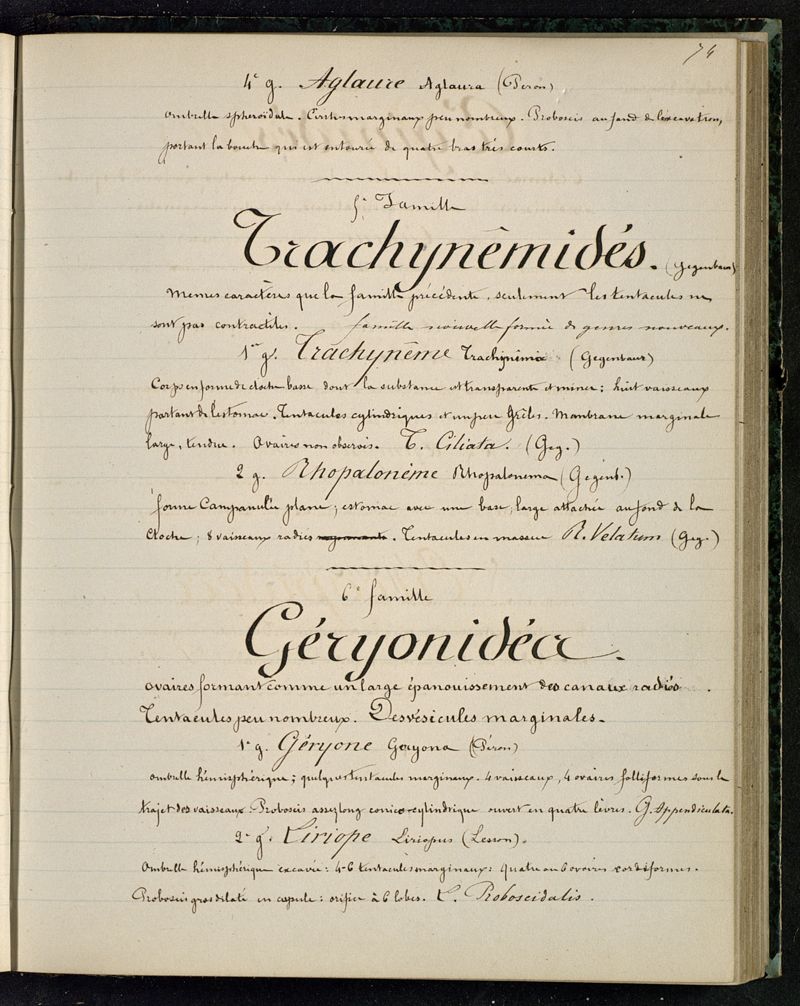 74
4e g. Aglaure Aglaura (Péron)
Ombrelle spheroïdale. Cirrhes marginaux peu nombreux. Proboscis au fond de l'excavation,
portant la bouche qui est entourée de quatre bras très courts.
5e Famille
Trachynêmidés. (Gegenbaur)
Memes caractères que la famille précédente, seulement les tentacules ne
sont pas contractiles. famille nouvelle formée de genres nouveaux.
1er g. Trachynême Trachinema (Gegenbaur)
Corps en forme de cloche basse dont la substance est transparente et mince ; huit vaisseaux
partant de l'estomac. Tentacules cylindriques et un peu Grêles. Membrane marginale
large, tendue. Ovaires non observés. T. Ciliata. (Geg.)
2 g. Rhopalonême Rhopalonema (Gegenb.)
forme Campanulée plane ; estomac avec une base, large attachée au fond de la
cloche ; 8 vaisseaux radiés. Tentacules en massue R. Velatum (Geg.)
6e famille
Géryonidéa.
Ovaires formant comme un large épanouissement des canaux radiés.
Tentacules peu nombreux. Des vésicules marginales.
1er g. Géryone Geryona (Péron)
Ombrelle hémisphérique ; quelques tentacules marginaux. 4 vaisseaux, 4 ovaires folliformes sous le
trajet des vaisseaux. Proboscis assez long conico-cylindrique ouvert en quatre lèvres. G. Appendiculata.
2e g. Liriope Liriopus (Lesson).
Ombrelle hémisphérique excavée : 4-6 tentacules marginaux : quatre ou 6 ovaires cordiformes.
Proboscis gros dilaté en capsule : orifice à 6 lobes. L. Proboscidalis.